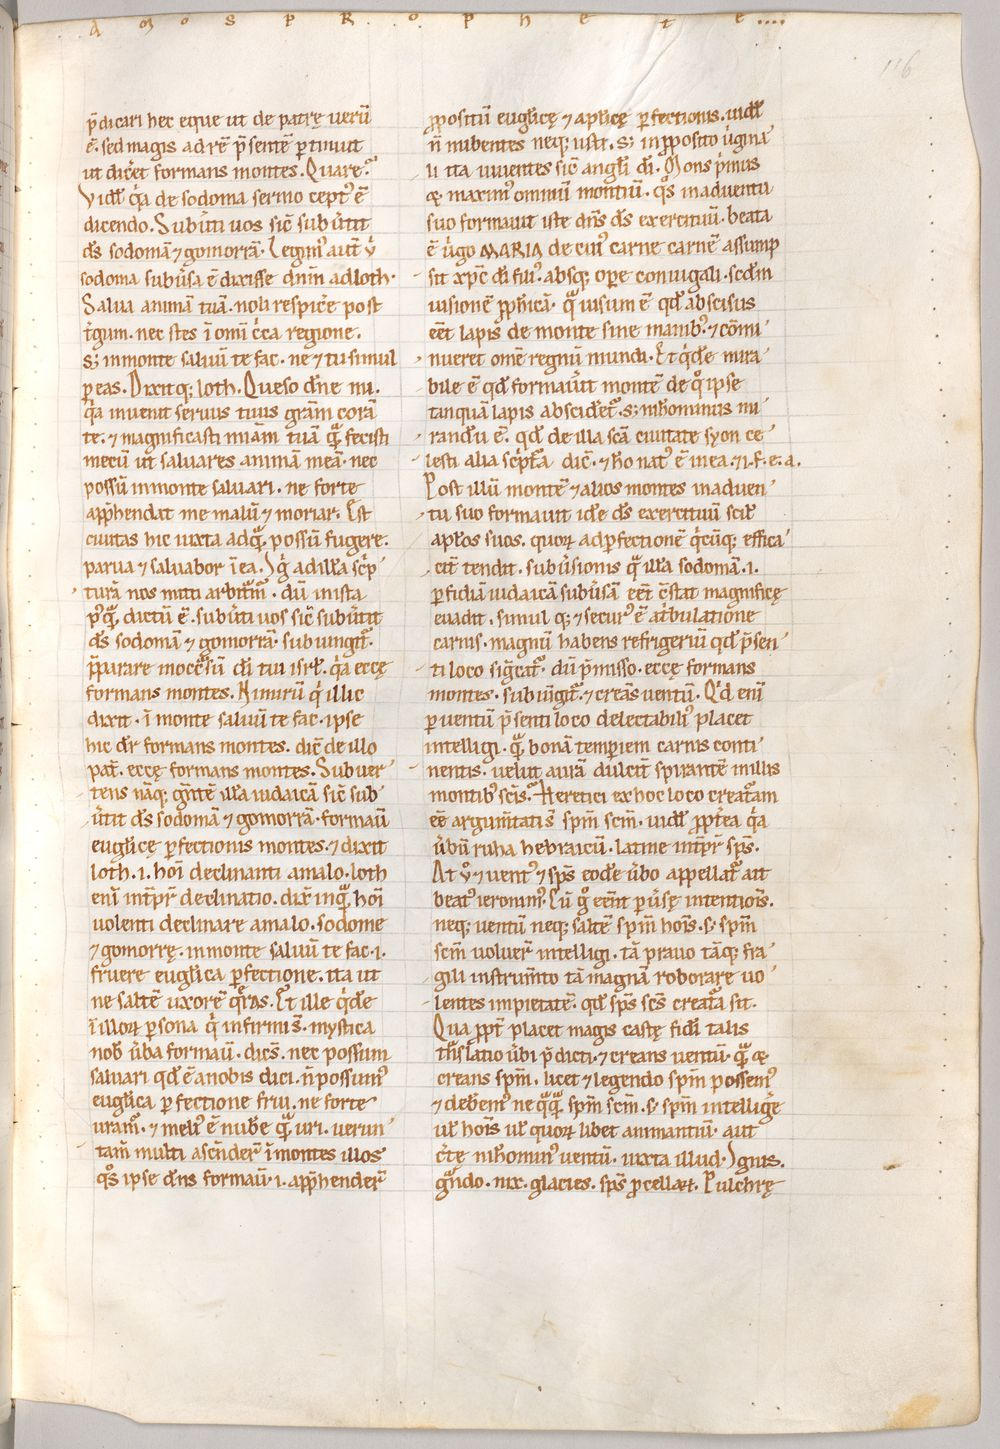 a m o s p R o p h e t e ....
116
p̄dicari hec eque ut de patrę uerū
ē. sed magis ad rē p̄sentē ꝑtinuit
ut dic̄et formans montes. Quare?
Vidl̄ q̇a de sodoma sermo cept᷒ ē
dicendo. Subūti uos sic̄ subūtit
dn̄s sodomā ⁊ gomorrā. Legim᷒ aut̄ ꝙ
sodoma subūsa ē dixisse dnm̄ ad loth.
Salua animā tuā. noli respic̄e post
t̄gum. nec stes ī om̄i c̄ca regione.
s; in monte saluū te fac. ne ⁊ tu simul
ꝑeas. Dixitq; loth. Queso dn̄e mi.
q̇a inuenit seruus tuus grām corā
te. ⁊ magnificasti mīam tuā quā fecisti
mecū ut saluares animā meā. nec
possū in monte saluari. ne forte
apph̄endat me malū ⁊ moriar. Est
ciuitas hic iuxta ad quā possū fugere.
parua ⁊ saluabor ī ea. Iḡ ad illā sc̄p
turā nos mitti arbitram̄. dū in ista
p᷒quā dictū ē. subūti uos sic̄ subūtit
dn̄s sodomā ⁊ gomorrā. subiungit᷑.
p̄parare in occursū dī tui isrl̄. q̇a eccę
formans montes. Nimirū q̇ illic
dixit. ī monte saluū te fac. ipse
hic dr̄ formans montes. dic̄ de illo
pat̄. eccę formans montes. Subuer
tens nāq; gentē illā iudaicā sic̄ sub
ūtit dn̄s sodomā ⁊ gomorrā. formauī
eugl̄icę ꝑfectionis montes. ⁊ dixit
loth. i. hoī declinanti a malo. loth
enī int̄pr̄ declinatio. dix̄ inquā hoī
uolenti declinare a malo. sodome
⁊ gomorrę. in monte saluū te fac. i.
fruere eugl̄ica ꝑfectione. ita ut
ne saltē uxorē q̄ras. Et ille q̇de
ī illoꝝ ꝑsona q̇ infirmi sī. mystica
nob᷒ ūba formauī. dicēs. nec possum
saluari qd̄ ē a nobis dici. n̄ possum᷒
eugl̄ica ꝑfectione frui. ne forte
uram᷒. ⁊ meli᷒ ē nube quā uri. uerun
tam̄ multi ascender̄ ī montes illos
q̊s ipse dn̄s formauī. i. apph̄ender̄
ꝓpositū eugl̄icę ⁊ apl̄icę ꝑfectionis. uidl̄
n̄ nubentes neq; usti. s; in ꝓposito ūgina
li ita uiuentes sic̄ angl̄i dī. Mons p̄mus
ac maxim᷒ omniū montiū. q̊s in aduentu
suo formauit iste dn̄s ds̄ exercituū. beata
ē ūgo MARIA de cui᷒ carne carnē assump
sit xp̄c dī fili᷒ absq; oꝑe coniugali. scd̄m
uisionē ꝓph̄icā. qua uisum ē qd̄ abscisus
eēt lapis de monte sine manib᷒. ⁊ cōmi
nueret omē regnū mundi. Et q̇de mira
bile ē qd̄ formauit montē de q̊ ipse
tanquā lapis abscidet᷑. s; nihominus mi
randū ē. qd̄ de illa scā ciuitate syon ce
lesti alia sc̄pt̄a dic̄. ⁊ ho nat᷒ ē in ea. ⁊ i. f. e. a.
Post illū montē ⁊ alios montes in aduen
tu suo formauit idē ds̄ exercituū scil̄
apl̄os suos. quoꝝ ad ꝑfectionē q̇cūq; effica
cit̄ tendit. subūsionis quā illā sodomā. i.
ꝑfidiā iudaicā subūsā eēt c̄stat magnificę
euadit. simul q; ⁊ secur᷒ ē a tribulatione
carnis. magnū habens refrigeriū qd̄ p̄sen
ti loco siḡcat᷑. dū p̄misso. eccę formans
montes. subiungit᷑. ⁊ creās uentū. Qd̄ enī
ꝑ uentū p̄senti loco delectabili᷒ placet
intelligi. quā bonā tempiem carnis conti
nentis. uelut aurā dulcit̄ spirantē in illis
montib᷒ scīs. Heretici ex hoc loco creat᷑am
eē argumtati sī spm̄ scm̄. uidl̄ ꝓpt̄ea q̇a
ūbū ruha hebraicū. latine int̄pr̄ sps̄.
At ꝟ ⁊ uent᷒ ⁊ sps̄ eodē ūbo appellat᷑ ait
beat᷒ ieronim᷒. Cū ḡ eēnt ꝑuersę intentiōis.
neq; uentū neq; saltē spm̄ hoīs. s; spm̄
scm̄ uoluer̄ intelligi. tā prauo tāq; fra
gili instrum̄to tā magnā roborare uo
lentes impietatē. qd̄ sps̄ scs̄ creat᷑a sit.
Qua ꝓpt̄ placet magis castę fidī talis
tn̄slatio ūbi p̄dicti. ⁊ creans uentū. quā ac
creans spm̄. licet ⁊ legendo spm̄ possem᷒
⁊ debem᷒ nequāquā spm̄ scm̄. s; spm̄ intellige
ul̄ hoīs ul̄ quoꝝ libet animantiū. aut
c̄te nihomin᷒ uentū. iuxta illud. Ignis.
grando. nix. glacies. sps̄ ꝓcellaꝝ. Pulchrę